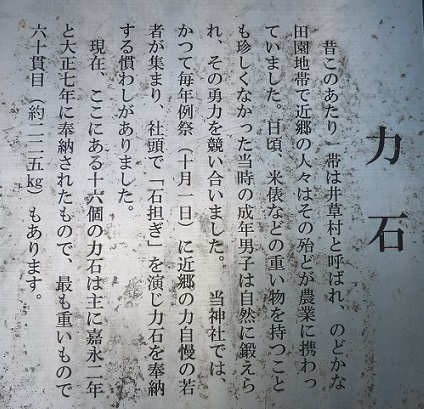 力石
昔このあたり一帯は井草村と呼ばれ、のどかな
田園地帯で近郷の人々はその殆どが農業に携わっ
ていました。日頃、米俵などの重い物を持つこと
も珍しくなかった当時の成年男子は自然に鍛えら
れ、その勇力を競い合いました。　当神社では、
かつて毎年例祭（十月一日）に近郷の力自慢の若
者が集まり、社頭で「石担ぎ」を演じ力石を奉納
する慣わしがありました。
現在、ここにある十六個の力石は主に嘉永二年
と大正七年に奉納されたもので、最も重いもので
六十貫目（約二二五㎏）もあります。